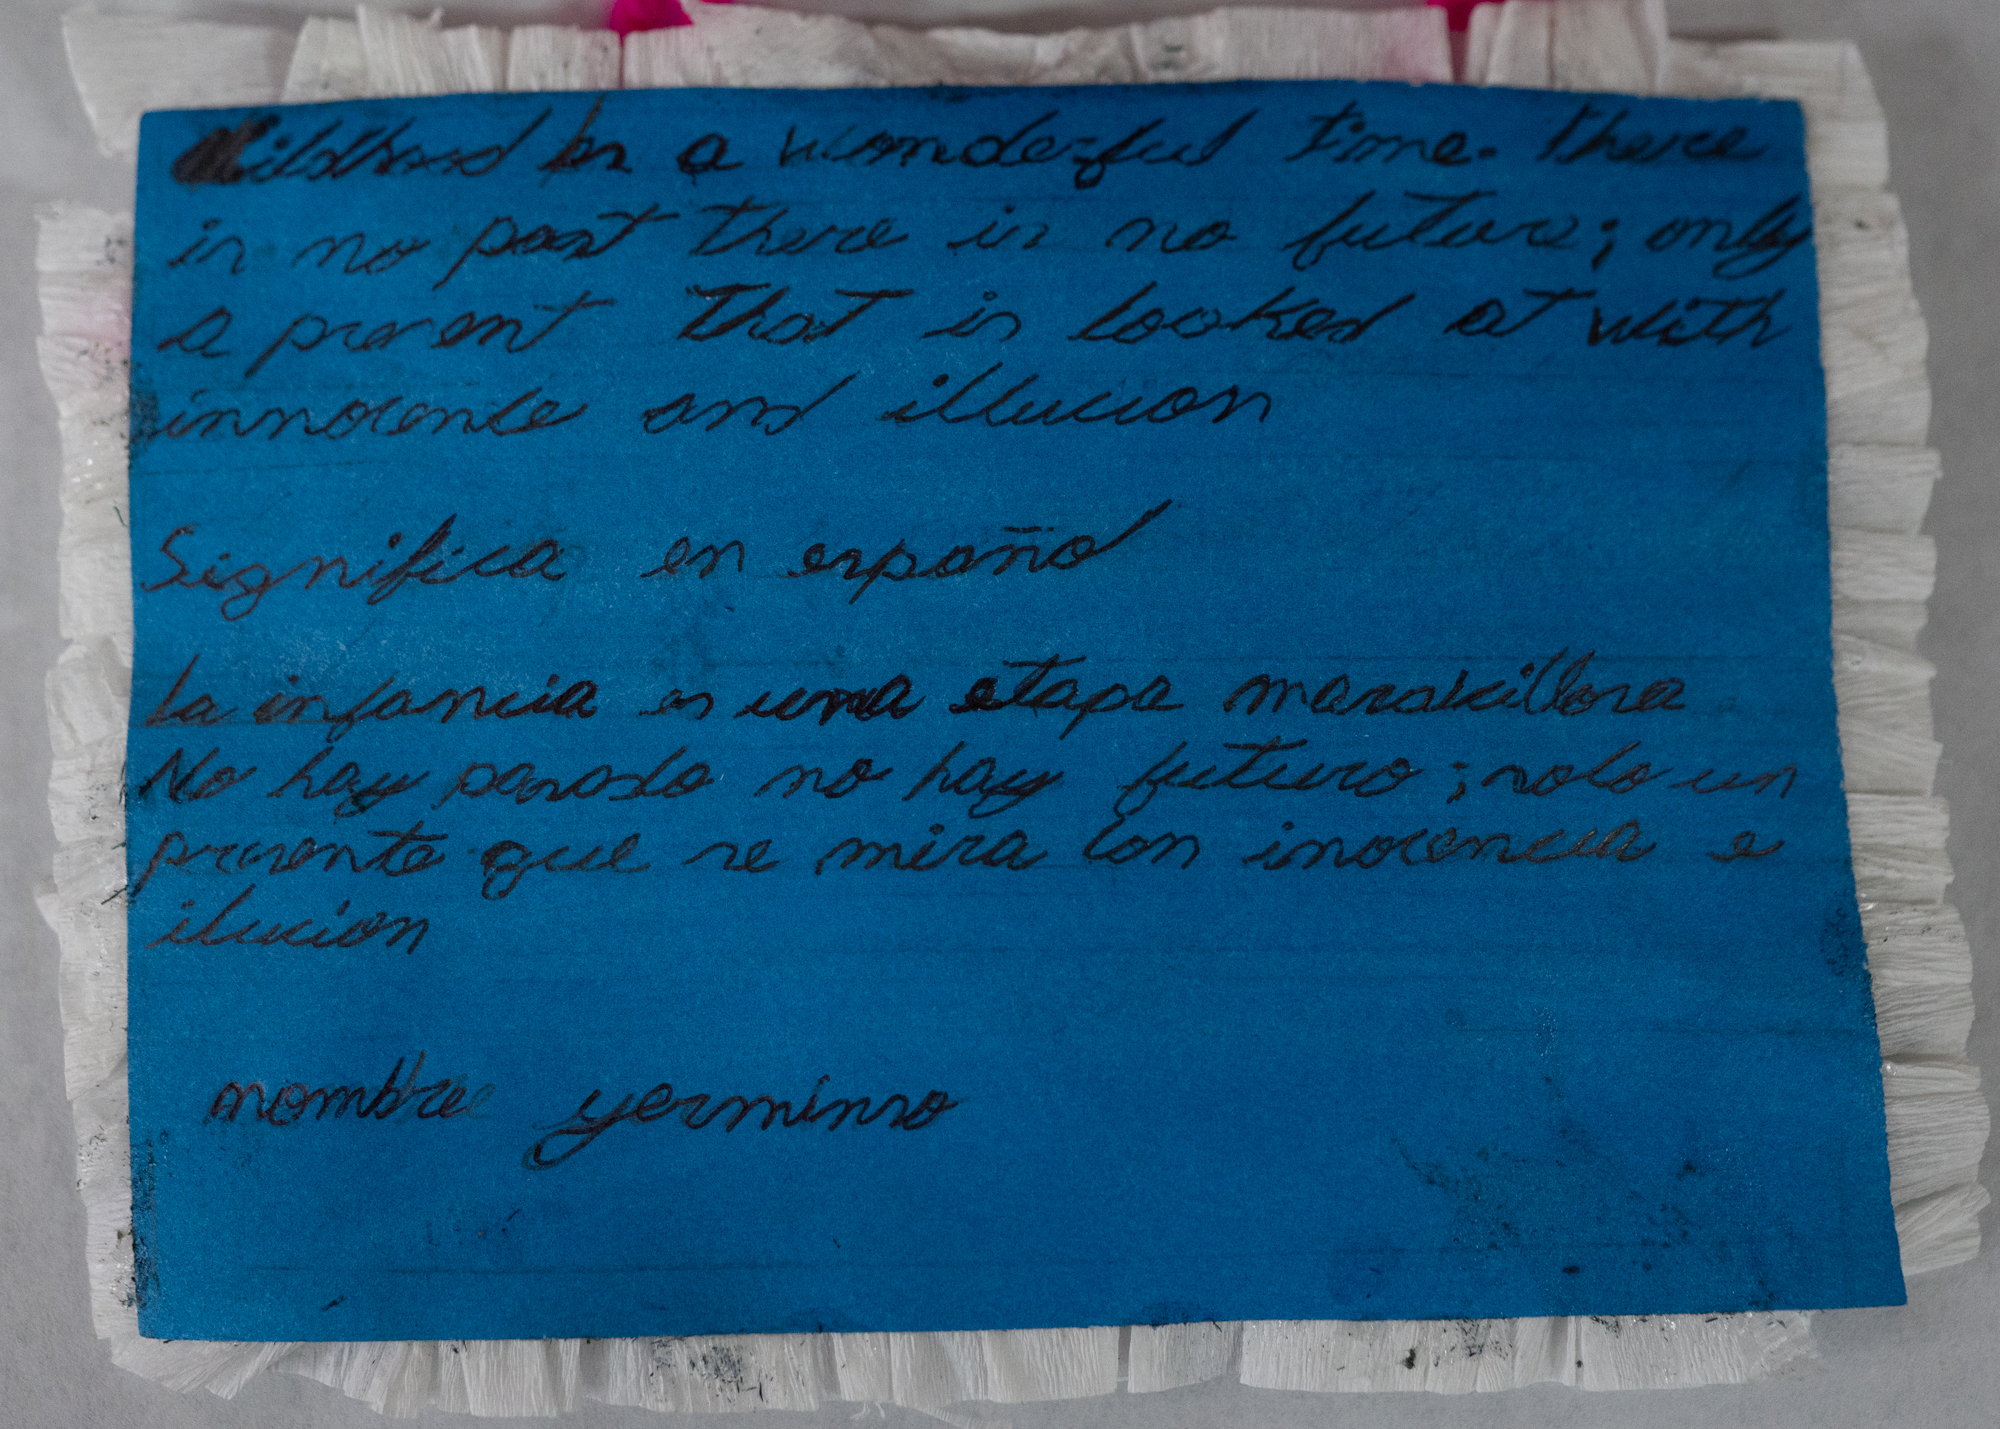 Childhood is a wonderful time. There
is no past there is no future; only
a present that is looked at with
innocente and illucion
Significa en español
La infancia es una etapa maravillosa
No hay pasado no hay futuro; solo un
presente que se mira con inocencia e
ilucion
nombre yerminso